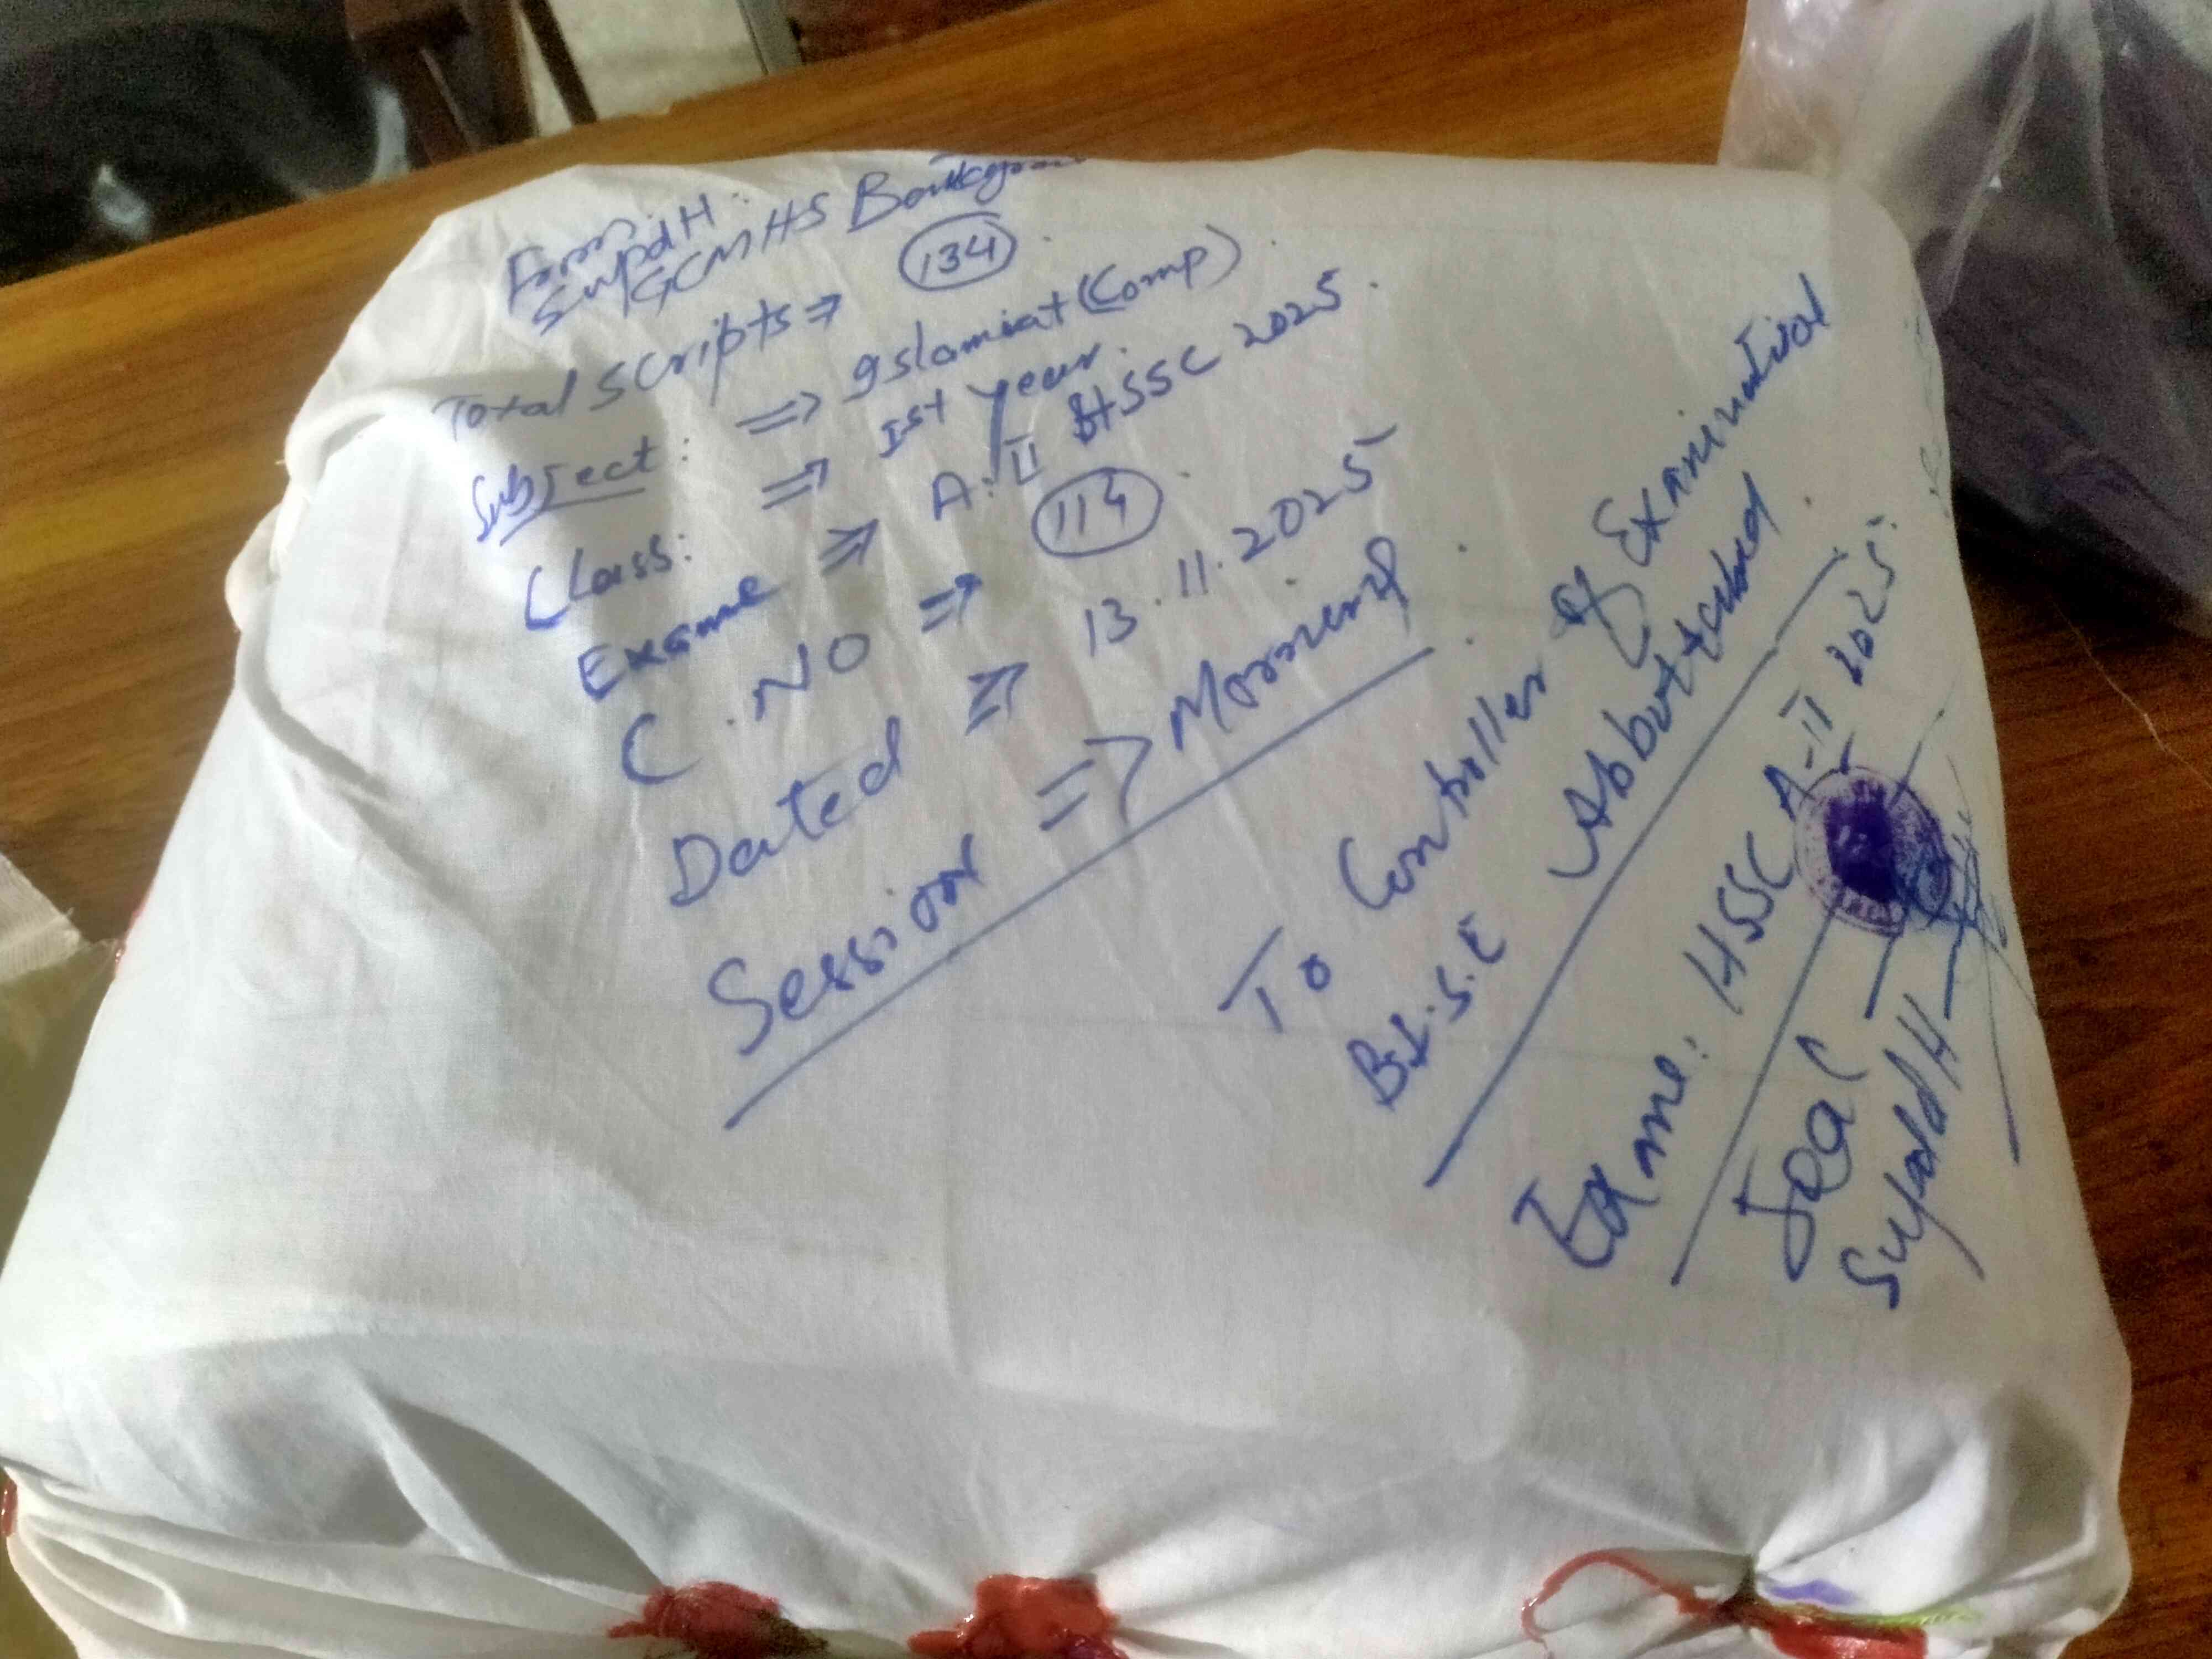 From:
Supdt:
GCMHS Battagram
Total Scripts => 134
Subject: => Islamiat (Comp)
Class: => Ist Year.
Exame => A-II HSSC 2025.
C.NO => 114
Dated => 13.11.2025
Session => Morning
To Controller of Examination
B.I.S.E Abbottabad.
Exame: HSSC A-II 2025.
Seal
Supdt